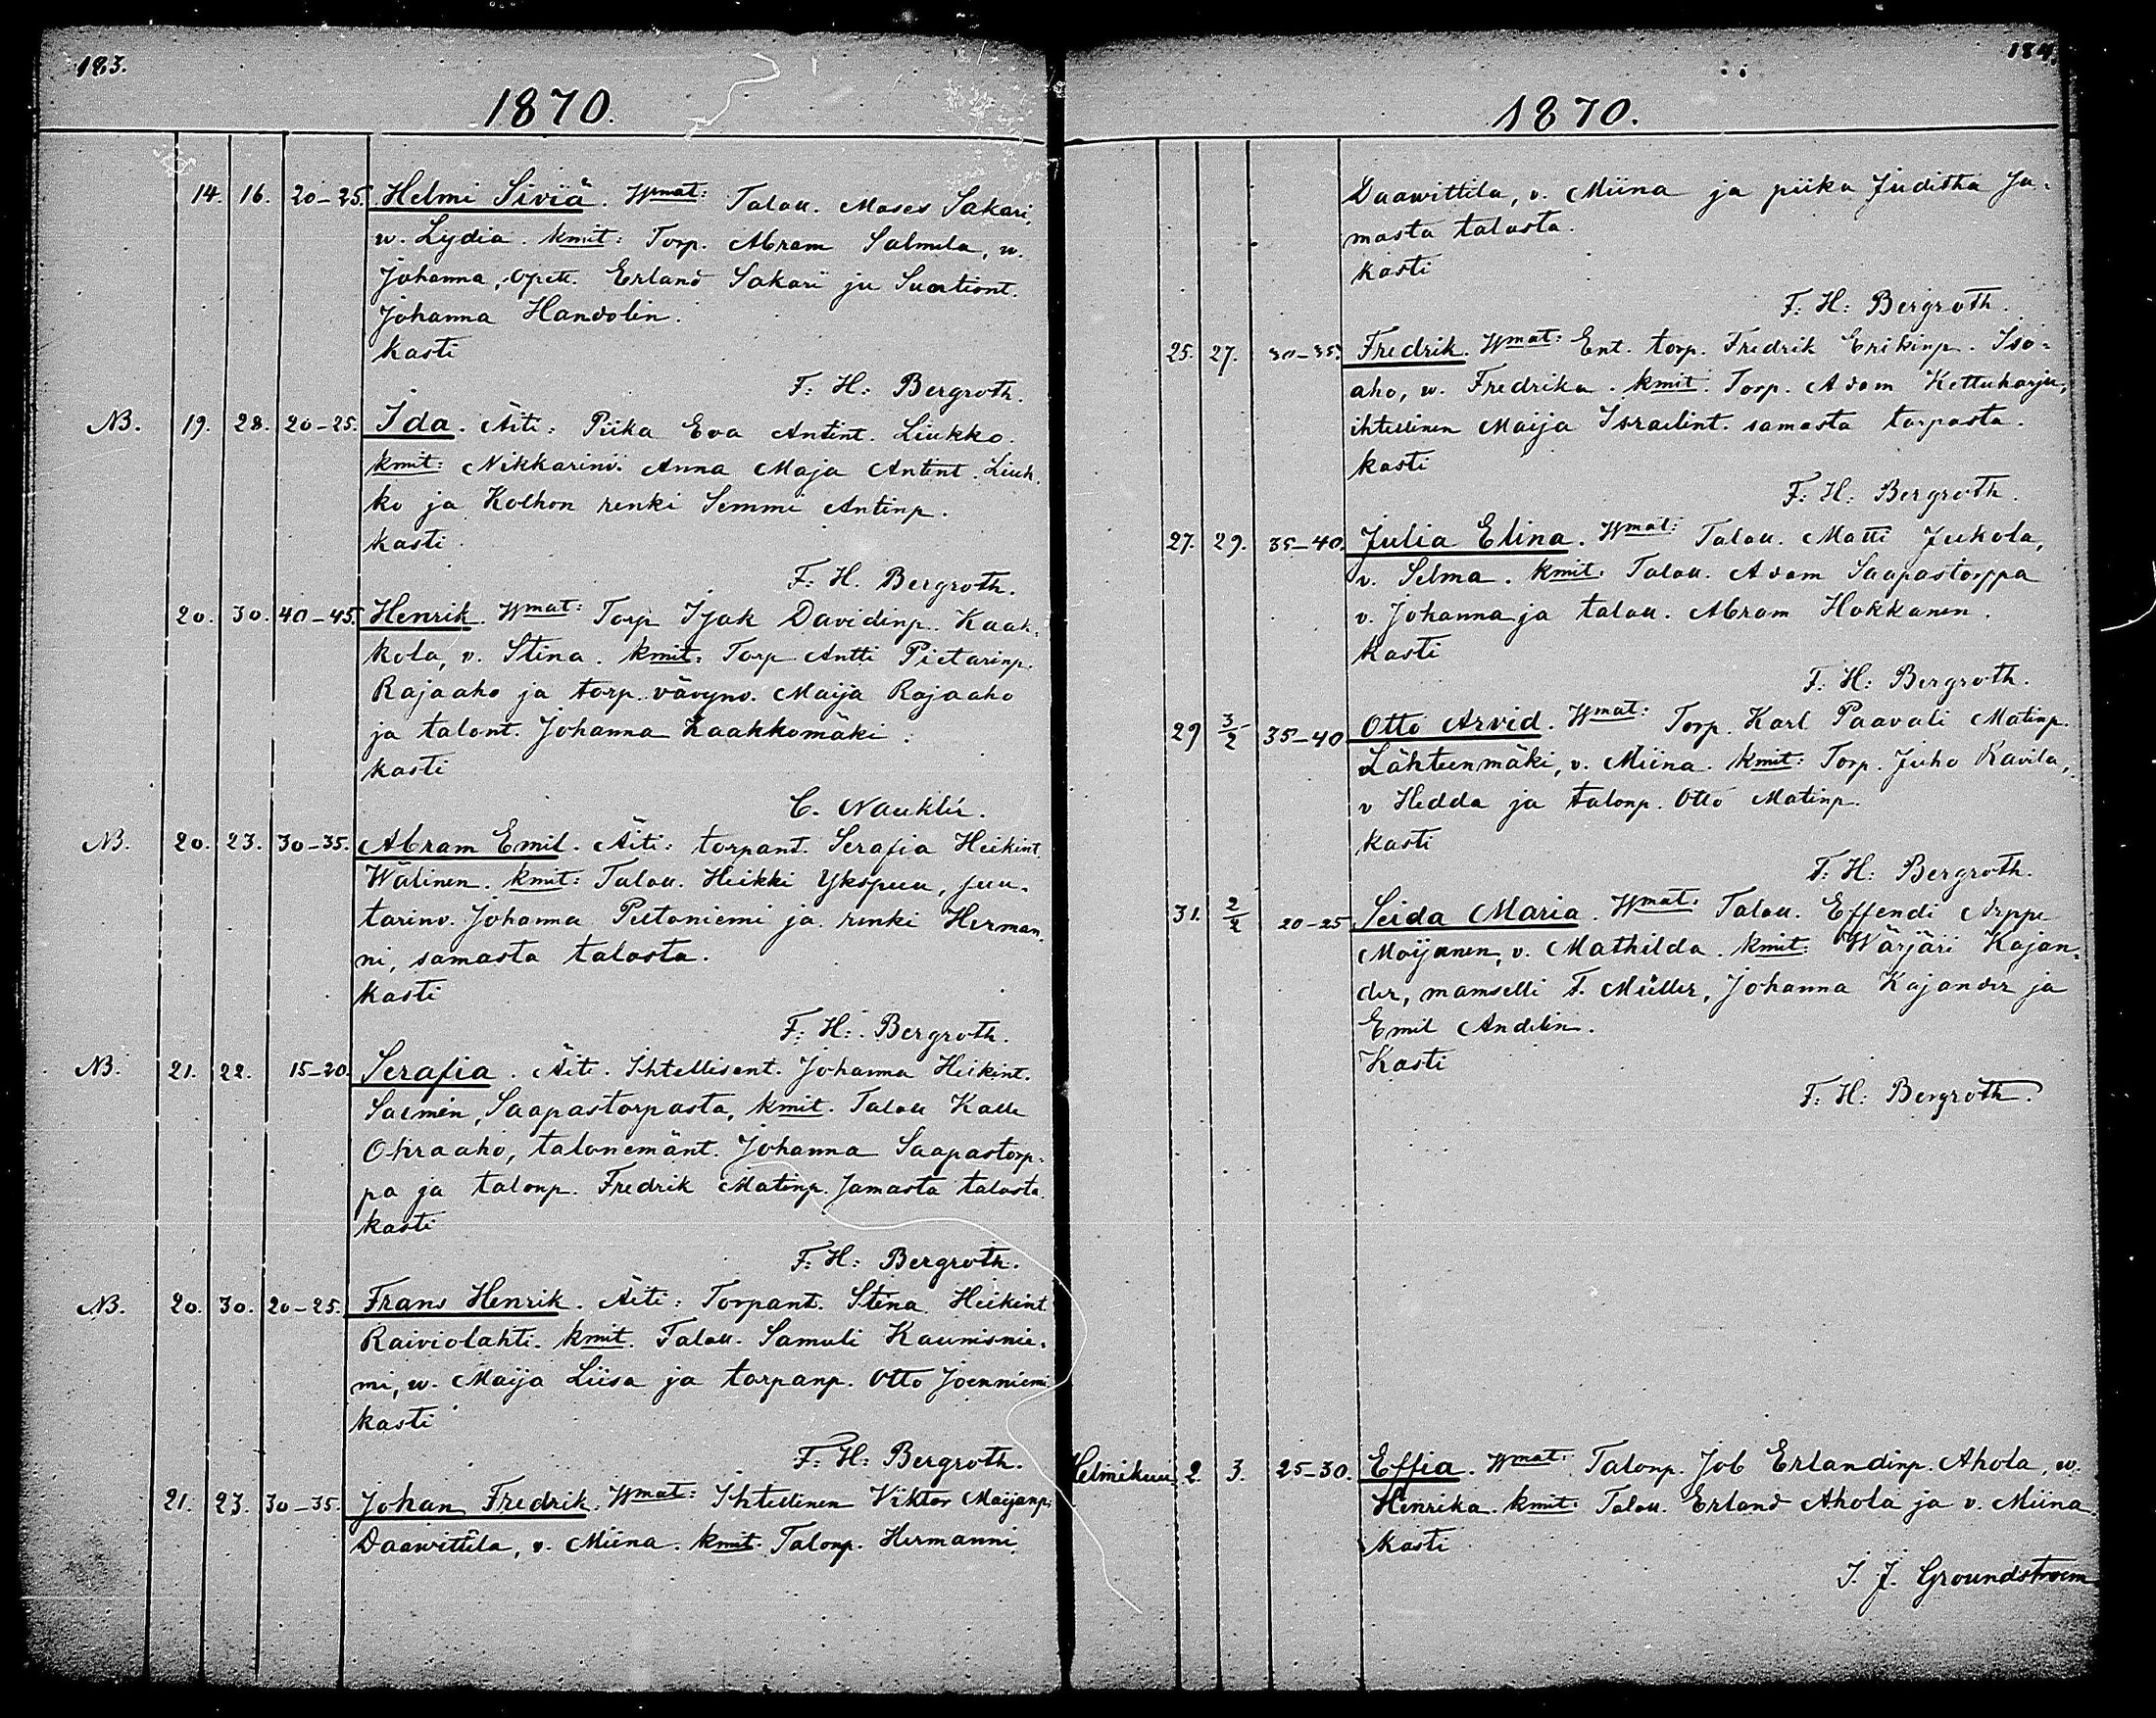 183.
1870.
14. 16. 20-25. Helmi Siviä. Wmat: Talou. Moses Sakari,
w. Lydia. kmit: Torp. Abram Salmela, w.
Johanna, Opett. Erland Sakari ja Suntiont.
Johanna Handolin.
kasti
F: H: Bergroth.
NB. 19. 28. 20-25. Ida. Äiti: Piika Eva Antint. Liukko.
kmit: Nikkarinv. Anna Maja Antint. Liuk-
ko ja Kolhon renki Semmi Antinp.
kasti
F: H. Bergroth.
20. 30. 40-45. Henrik. Wmat: Torp Isak Davidinp. Kaak-
kola, v. Stina. kmit: Torp Antti Pietarinp.
Rajaaho ja torp. vävynv. Maija Rajaaho
ja talont. Johanna Kaakkomäki.
kasti
C. Nauklér.
NB. 20. 23. 30-35. Abram Emil. Äiti: torpant. Serafia Heikint.
Wälinen. kmit: Talou. Heikki Ykspuu, suu-
tarinv. Johanna Peltoniemi ja renki Herman-
ni, samasta talosta.
kasti
F: H: Bergroth.
NB. 21. 22. 15-20. Serafia. Äiti. Ihtellisent. Johanna Heikint.
Salmén, Saapastorpasta, kmit. Talou Kalle
Ohraaho, talonemänt. Johanna Saapastorp-
pa ja talonp. Fredrik Matinp. samasta talosta.
kasti
F: H: Bergroth.
NB. 20. 30. 20-25. Frans Henrik. Äiti: Torpant. Stina Heikint.
Raiviolahti. kmit. Talou. Samuli Kaunisnie-
mi, w. Maija Liisa ja torpanp. Otto Joenniemi
kasti
F: H: Bergroth.
21. 23. 30-35. Johan Fredrik. Wmat: Ihtellinen Viktor Maijanp.
Daawittila, v. Miina. kmit. Talonp. Hermanni
184.
1870.
Daawittila, v. Miina ja piika Juditha sa-
masta talosta.
kasti
F: H: Bergroth.
25. 27. 30-35. Fredrik. Wmat: Ent. torp. Fredrik Erikinp. Iso-
aho, w. Fredrika. kmit. Torp. Adam Kettuharju,
ihtellinen Maija Israelint. samasta torpasta.
kasti
F: H: Bergroth.
27. 29. 35-40. Julia Elina. Wmat: Talou. Matti Jukola,
v. Selma. kmit. Talou. Adam Saapastorppa
v. Johanna ja talou. Abram Hokkanen.
kasti
F: H: Bergroth.
29 3/2 35-40 Otto Arvid. Wmat: Torp. Karl Paavali Matinp.
Lähteenmäki, v. Miina. kmit: Torp. Juho Ravila,
v Hedda ja talonp. Otto Matinp.
kasti
F: H: Bergroth.
31. 2/2 20-25 Seida Maria. Wmat. Talou. Effendi Arppe
Moijanen, v. Mathilda. kmit. Wärjäri Kajan-
der, mamselli F. Müller, Johanna Kajander ja
Emil Andelin.
Kasti
F: H: Bergroth.
Helmikuu 2. 3. 25-30. Effia. Wmat. Talonp. Job Erlandinp. Ahola, w.
Henrika. kmit: Talou. Erland Ahola ja v. Miina
kasti
I. J. Groundstroem